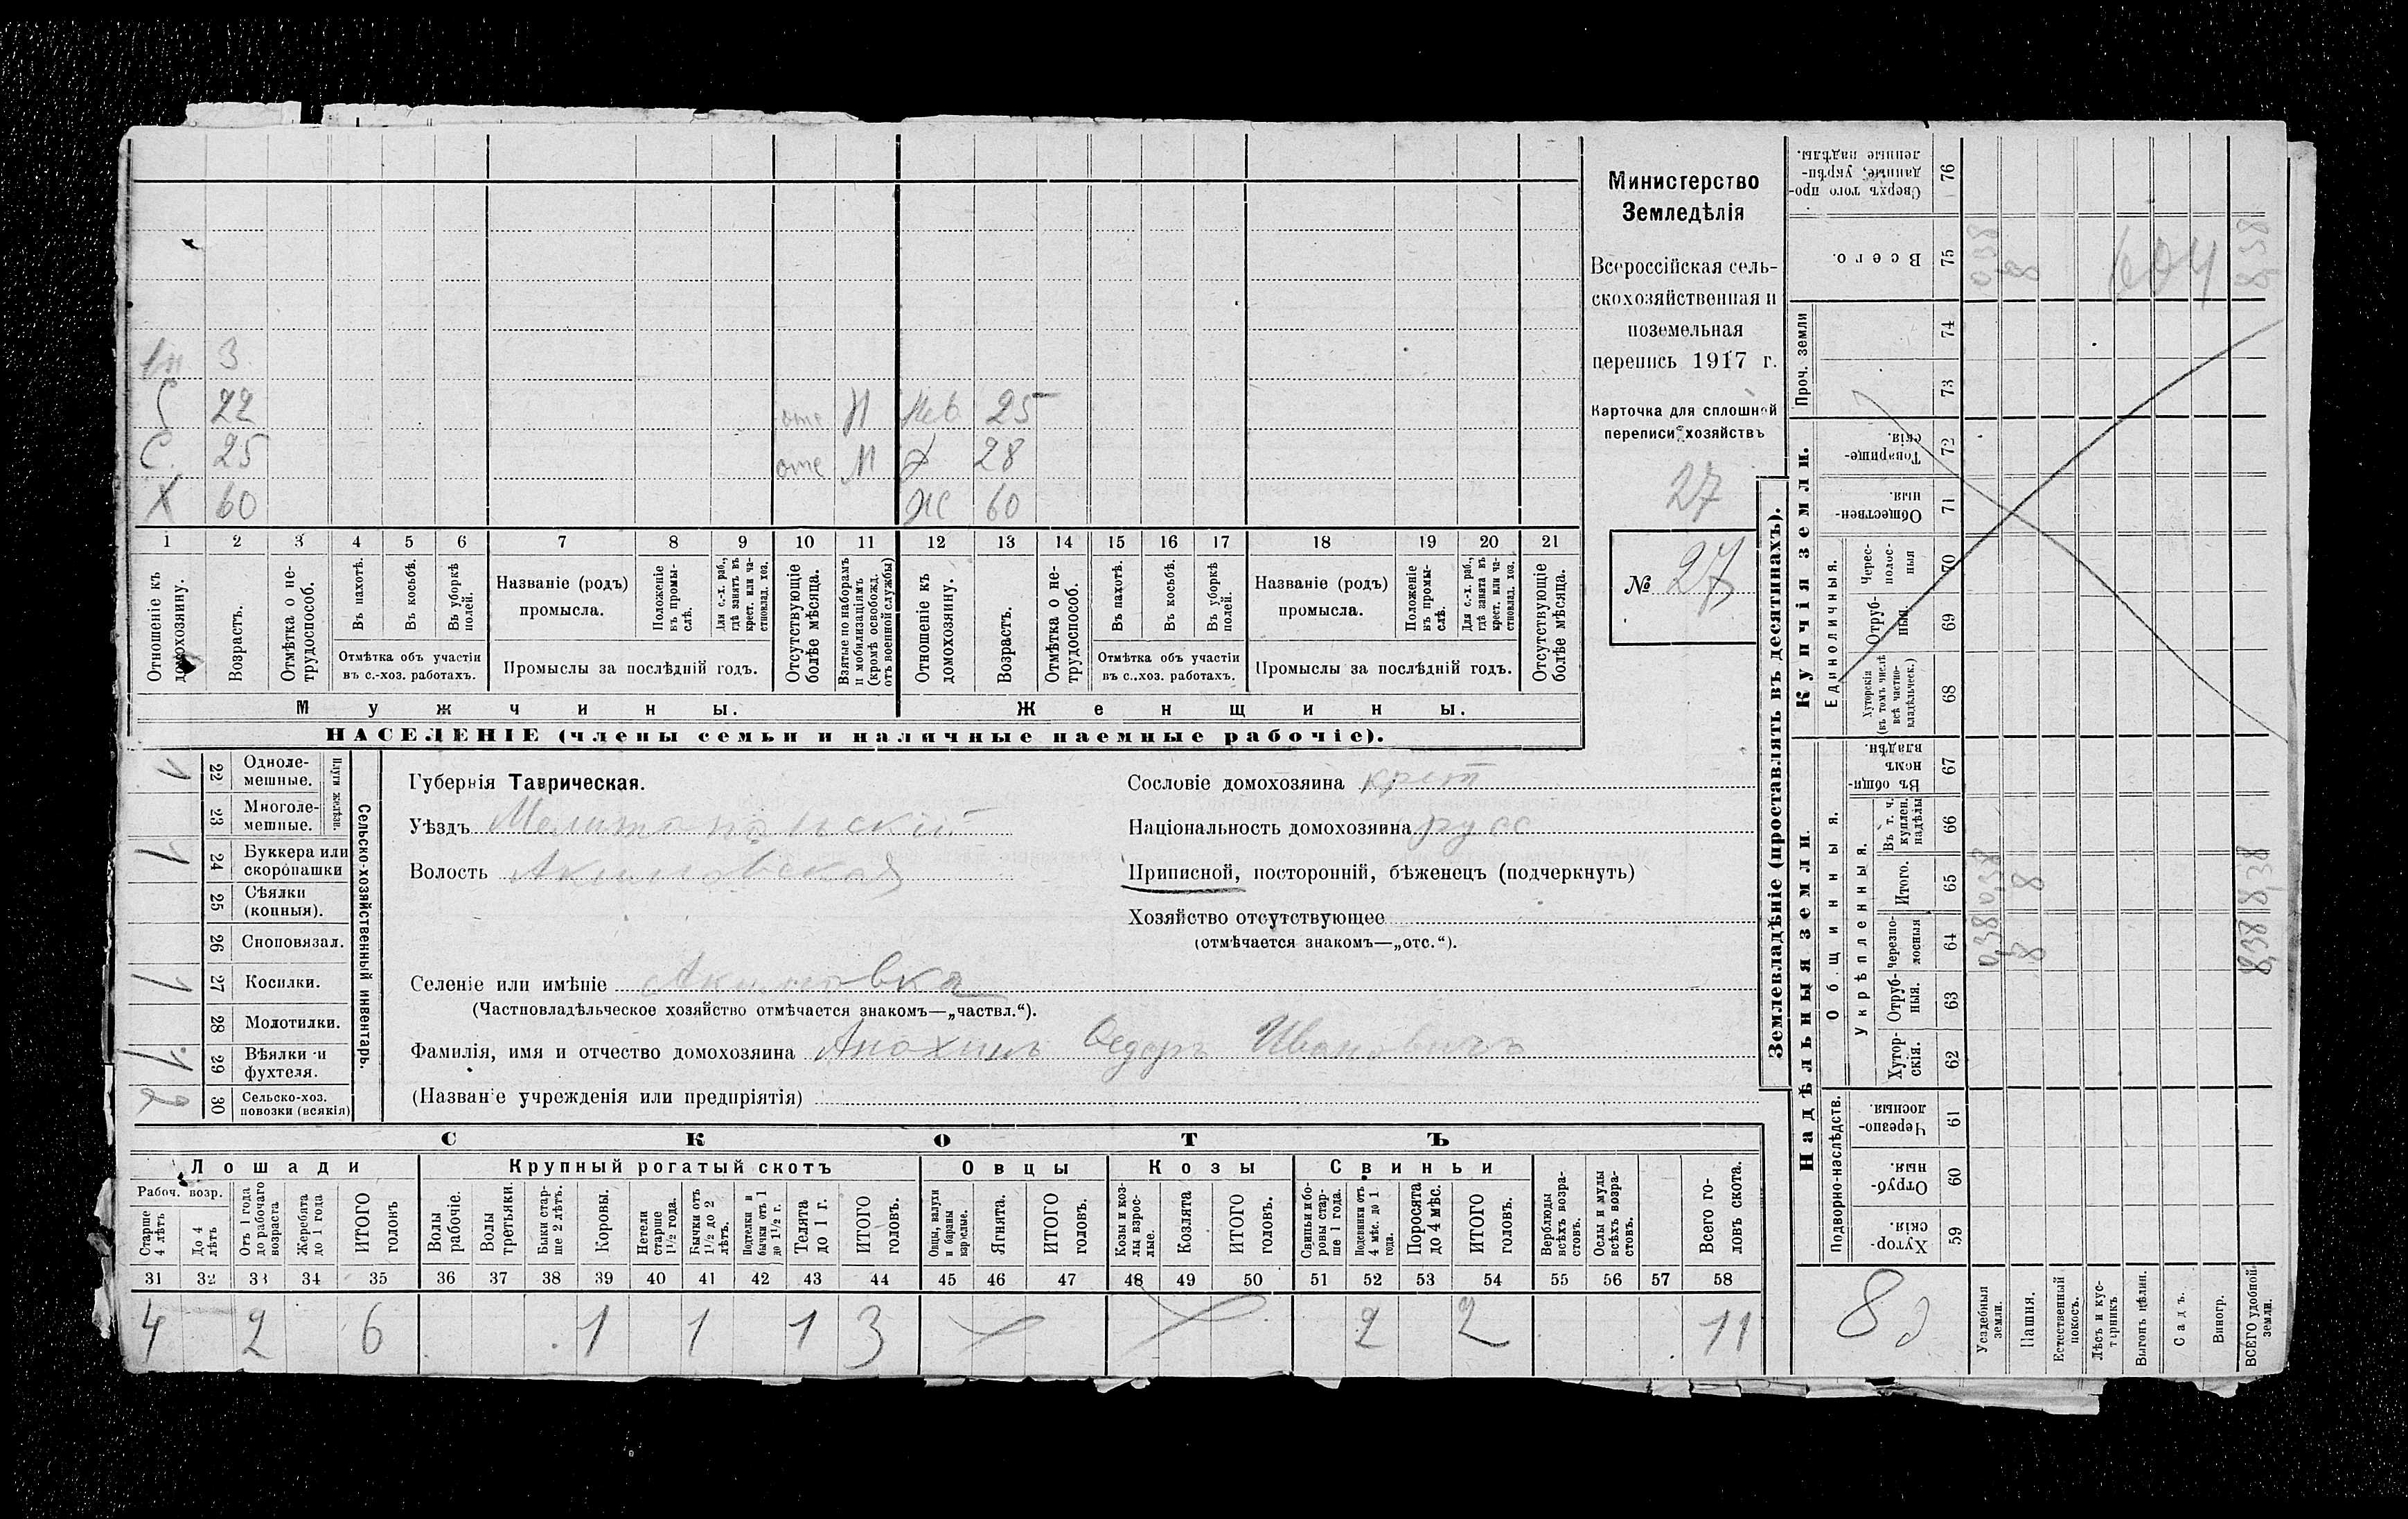 Министерство
Земледѣлія
Всероссійская сель-
скохозяйственная и
поземельная
перепись 1917 г.
Карточка для сплошной
переписи хозяйствъ
27
№ 27
3
С 22 отс М Нев 25
С. 25 отс М Д 28
Х 60 Ж 60
1 2 3 4 5 6 7 8 9 10 11 12 13 14 15 16 17 18 19 20 21
Отношеніе къ домохозяину.
Возрастъ.
Отмѣтка о не-трудоспособ.
Въ пахотѣ.
Въ косьбѣ.
Въ уборкѣ полей.
Отмѣтка объ участіи въ с.-хоз. работахъ.
Названіе (родъ) промысла.
Положеніе въ промы-слѣ.
Для с.-х. раб., гдѣ занятъ въ крест. или ча-стновлад. хоз.
Промыслы за послѣдній годъ.
Отсутствующіе болѣе мѣсяца.
Взятые по наборамъ и мобилизаціямъ (кромѣ освобожд. отъ военной службы)
Отношеніе къ домохозяину.
Возрастъ.
Отмѣтка о не-трудоспособ.
Въ пахотѣ.
Въ косьбѣ.
Въ уборкѣ полей.
Отмѣтка объ участіи въ с.-хоз. работахъ.
Названіе (родъ) промысла.
Положеніе въ промы-слѣ.
Для с.-х. раб., гдѣ занята въ крест. или ча-стновлад. хоз.
Промыслы за послѣдній годъ.
Отсутствующіе болѣе мѣсяца.
Мужчины. Женщины.
НАСЕЛЕНІЕ (члены семьи и наличные наемные рабочіе).
Сельско-хозяйственный инвентарь.
Плуги желѣзн.
1 22 Одноле-мешные.
23 Многоле-мешные.
1 24 Буккера или скоропашки
25 Сѣялки (конныя).
26 Сноповязал.
1 27 Косилки.
28 Молотилки.
1 29 Вѣялки и фухтеля.
2 30 Сельско-хоз. повозки (всякія)
Губернія Таврическая.
Уѣздъ Мелитопольскій
Волость Акимовская
Сословіе домохозяина крест
Національность домохозяина русс
Приписной, посторонній, бѣженецъ (подчеркнуть)
Хозяйство отсутствующее
(отмѣчается знакомъ—„отс.“).
Селеніе или имѣніе Акимовка
(Частновладѣльческое хозяйство отмѣчается знакомъ—„частвл.“).
Фамилія, имя и отчество домохозяина Анохинъ Федоръ Ивановичъ
(Названіе учрежденія или предпріятія)
СКОТЪ
Лошади Крупный рогатый скотъ Овцы Козы Свиньи
Рабоч. возр.
Старше 4 лѣтъ
До 4 лѣтъ
Отъ 1 года до рабочаго возраста
Жеребята до 1 года
ИТОГО головъ
Волы рабочіе.
Волы третьяки.
Быки стар-ше 2 лѣтъ.
Коровы.
Нетели старше 1½ года.
Бычки отъ 1½ до 2 лѣтъ.
Подтелки и бычки отъ 1 до 1½ г.
Телята до 1 г.
ИТОГО головъ.
Овцы, валухи и бараны взрослые.
Ягнята.
ИТОГО головъ.
Козы и коз-лы взрос-лые.
Козлята
ИТОГО головъ.
Свиньи и бо-ровы стар-ше 1 года.
Подсвинки отъ 4 мѣс. до 1 года.
Поросята до 4 мѣс.
ИТОГО головъ.
Верблюды всѣхъ возра-стовъ.
Ослы и мулы всѣхъ возра-стовъ.
Всего го-ловъ скота.
31 32 33 34 35 36 37 38 39 40 41 42 43 44 45 46 47 48 49 50 51 52 53 54 55 56 57 58
4 2 6 1 1 1 3 2 2 11
Землевладѣніе (проставлять въ десятинахъ).
Купчія земли.
Надѣльныя земли.
Сверхъ того про-данные, укрѣп-ленные надѣлы. 76
Всего. 75
Проч. земли 74 73
Товарище-скія. 72
Обществен-ныя. 71
Единоличныя.
Черес-полос-ныя 70
Отруб-ныя 69
Хуторскія (въ томъ числѣ всѣ частно-владѣльческ.) 68
Общинныя.
Въ общи-номъ владѣн. 67
Укрѣпленныя.
Въ т. ч. куплен. надѣлы 66
Итого. 65
Черезпо-лосныя 64
Отруб-ныя. 63
Хутор-скія. 62
Подворно-наслѣдств.
Черезпо-лосныя. 61
Отруб-ныя. 60
Хутор-скія. 59
Усадебныя земли. 0,38 0,38 0,38
Пашня. 8 8 8
Естественный покосъ.
Лѣсъ и кус-тарникъ
Выгонъ цѣлин.
Садъ.
Виногр.
ВСЕГО удобной земли. 8,38 8,38 8,38
604
8д